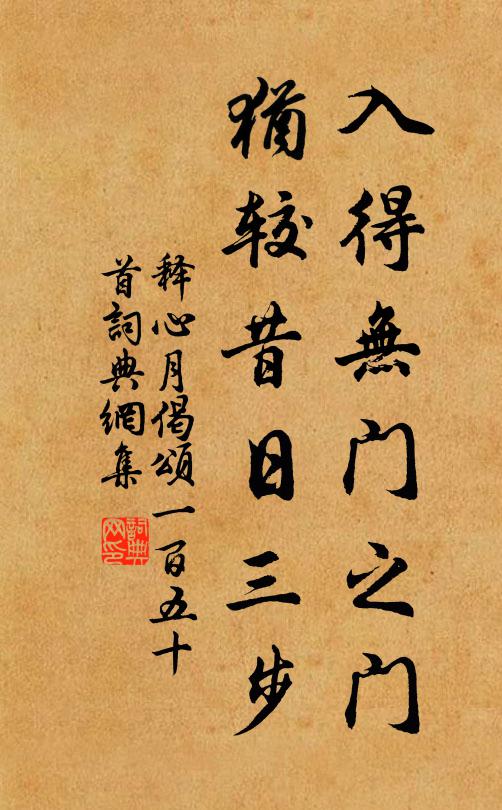 入得無门之门
猶较昔日三步
释心月偈頌一百五十
首詞典網集
詞典
网印